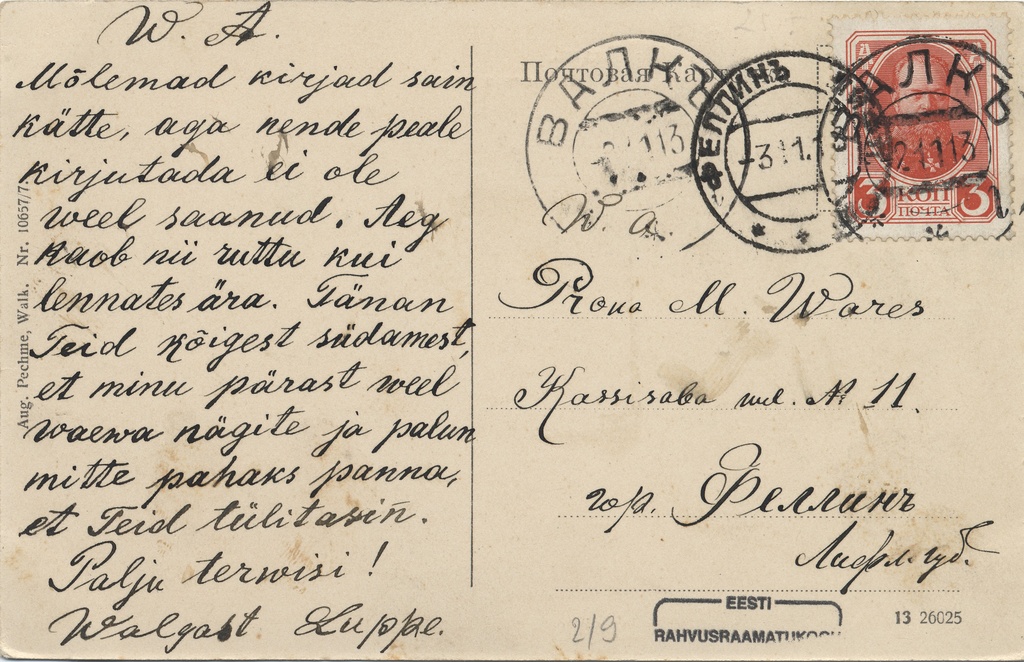 W. A.
Mõlemad kirjad sain
kätte, aga nende peale
kirjutada ei ole
weel saanud. Aeg
kaob nii ruttu kui
lennates ära. Tänan
Teid kõigest südamest,
et minu pärast weel
waewa nägite ja palun
mitte pahaks panna,
et Teid tülitasin.
Palju terwisi!
Walgast Luppe.
Aug. Pechme, Walk. Nr. 10657/7
Почтовая
ВАЛКЪ
2 11 13
ФЕЛЛИНЪ
-3 11.1
ВАЛКЪ
2 11 13
3 КОП 3
ПОЧТА
W. A.
Proua M. Wares
Kassisaba
№ 11.
гор. Феллинъ
Лифл. губ.
EESTI
RAHVUSRAAMATUKOGU
2/9
13 26025